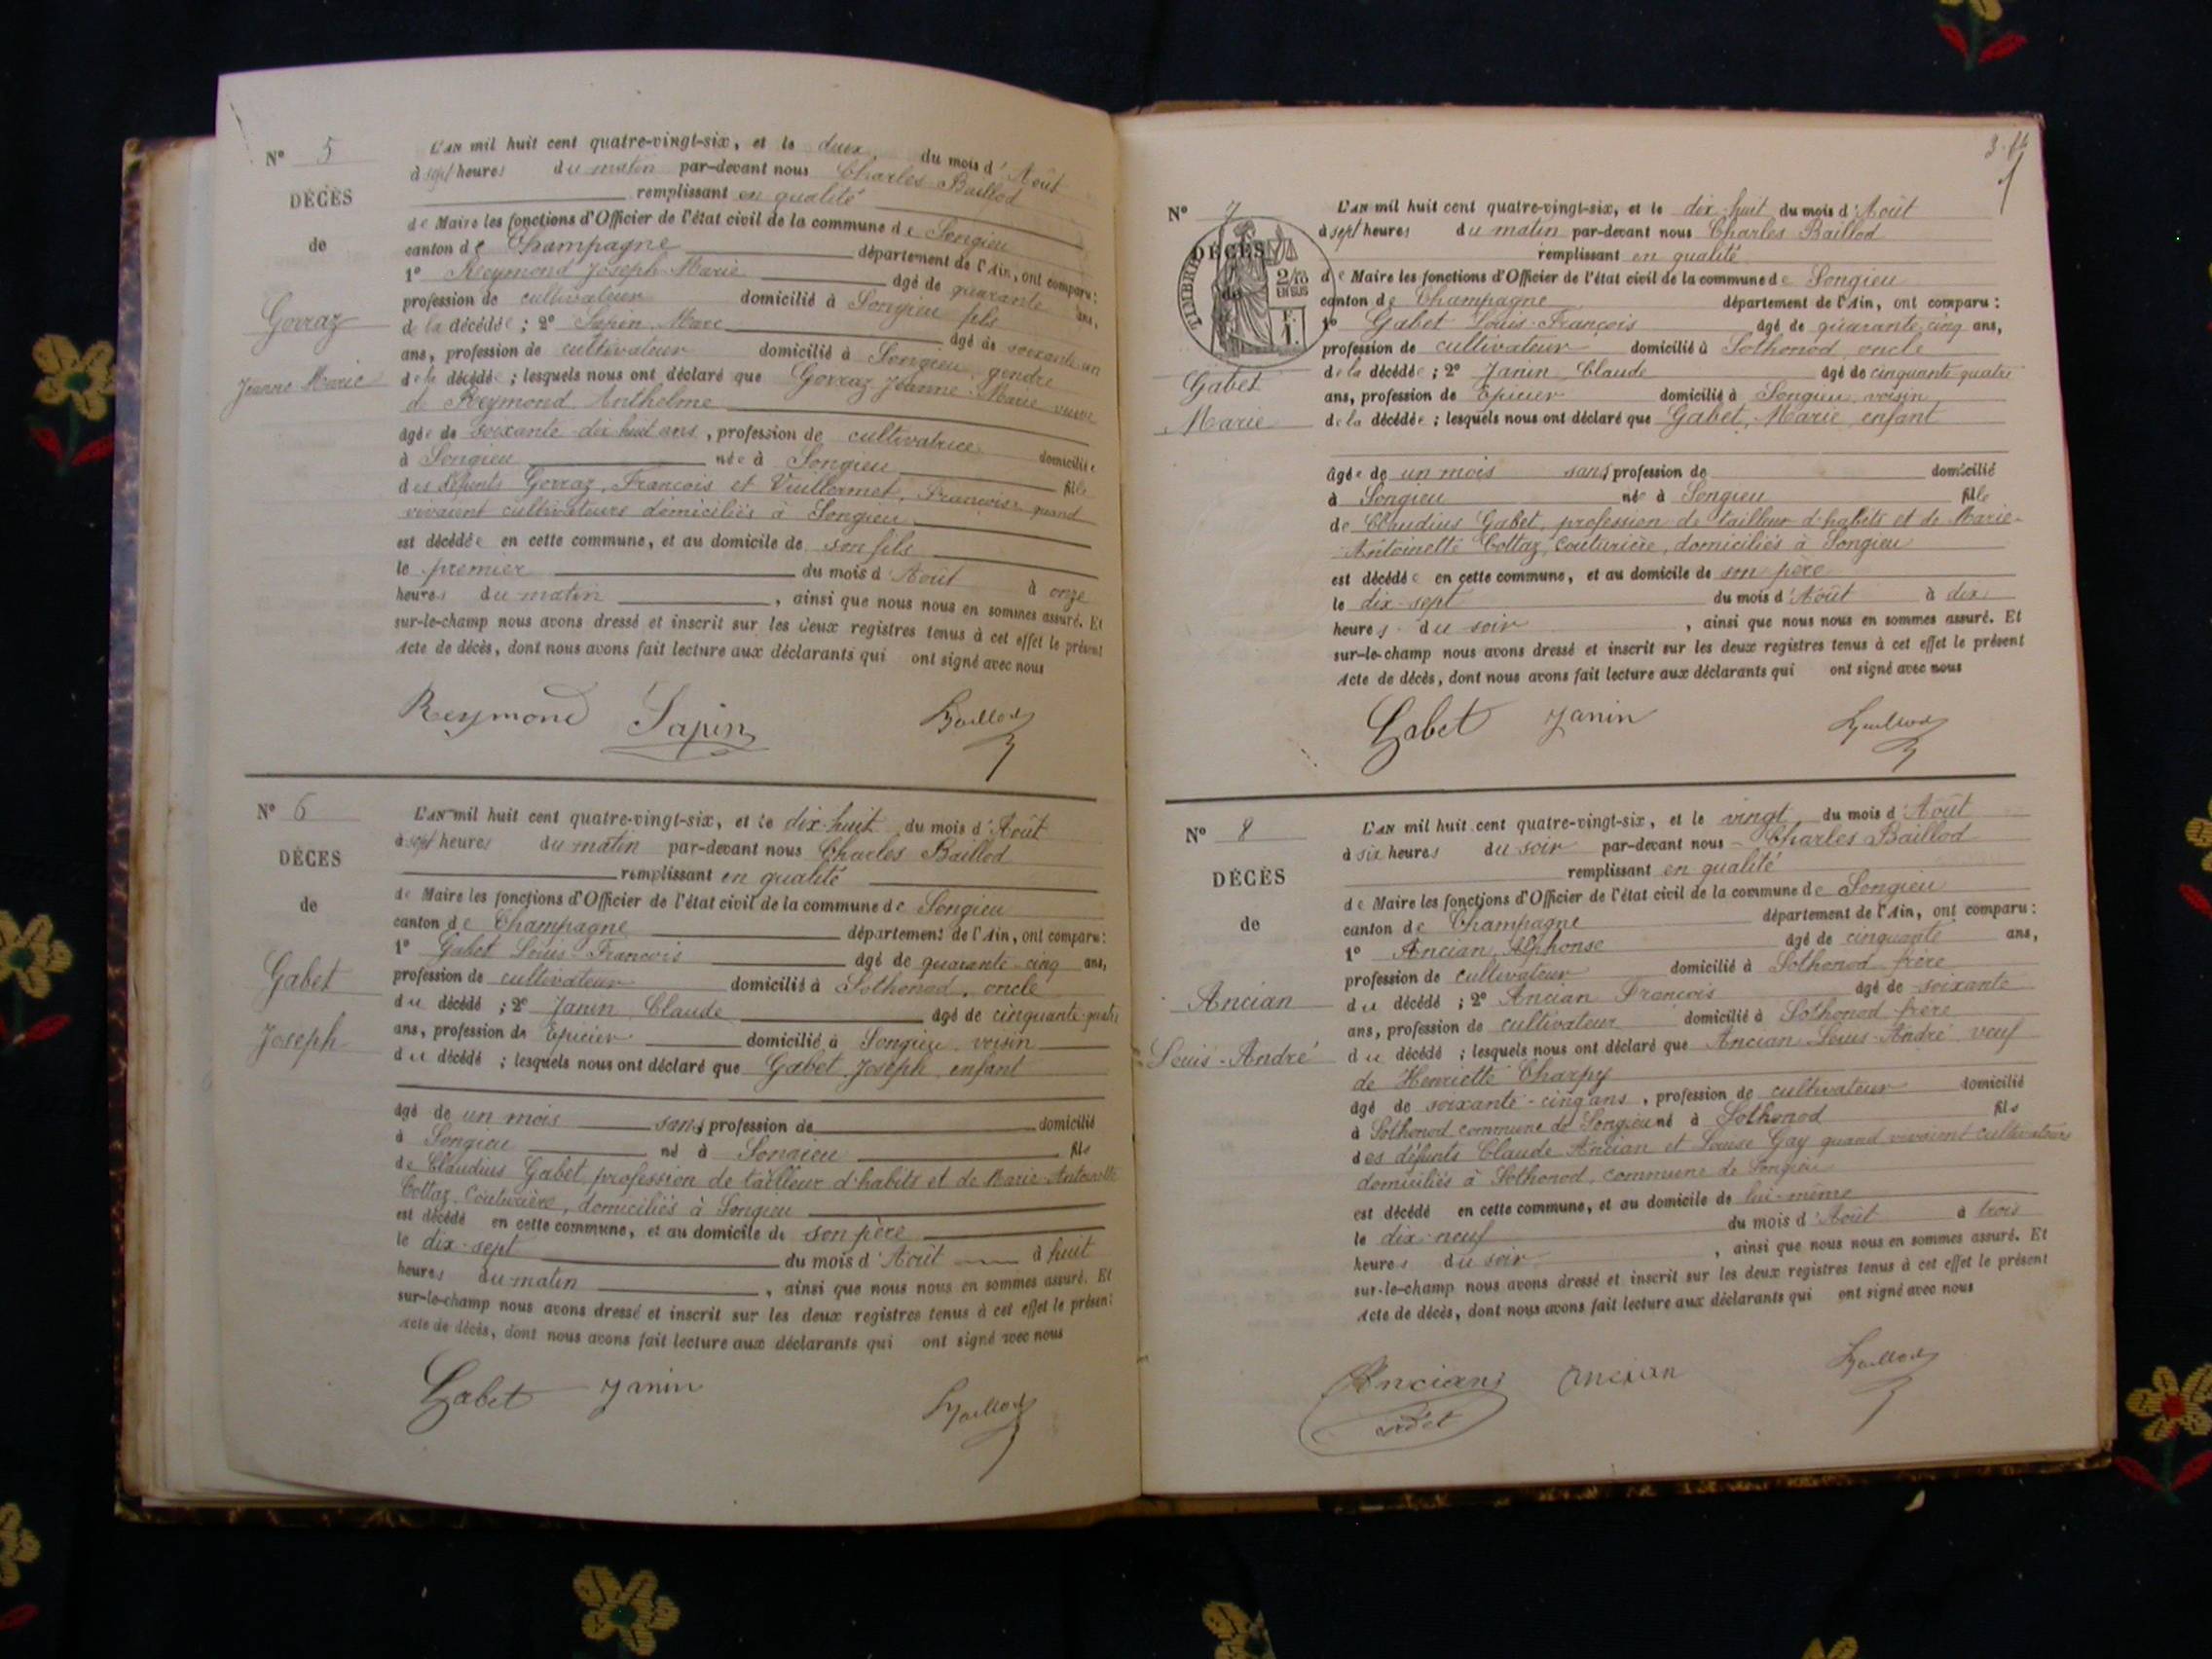 N° 5
DÉCÈS
de
Gorraz
Jeanne Marie
L'AN mil huit cent quatre-vingt-six, et le deux du mois d'Août
à sept heures du matin par-devant nous Charles Baillod
remplissant en qualité
de Maire les fonctions d'Officier de l'état civil de la commune de Songieu
canton de Champagne département de l'Ain, ont comparu :
1° Reymond Joseph-Marie âgé de quarante ans,
profession de cultivateur domicilié à Songieu fils
de la décédée ; 2° Sapin Marc âgé de soixante un
ans, profession de cultivateur domicilié à Songieu, gendre
de la décédée ; lesquels nous ont déclaré que Gorraz Jeanne-Marie veuve
de Reymond Anthelme
âgée de soixante-dix huit ans, profession de cultivatrice domiciliée
à Songieu née à Songieu fille
des défunts Gorraz, François et Vuillermet, Françoise quand
vivaient cultivateurs domiciliés à Songieu
est décédée en cette commune, et au domicile de son fils
le premier du mois d'Août à onze
heures du matin, ainsi que nous nous en sommes assuré. Et
sur-le-champ nous avons dressé et inscrit sur les deux registres tenus à cet effet le présent
Acte de décès, dont nous avons fait lecture aux déclarants qui ont signé avec nous
Reymond Sapin Baillod
N° 6
DÉCES
de
Gabet
Joseph
L'AN mil huit cent quatre-vingt-six, et le dix-huit du mois d'Août
à sept heures du matin par-devant nous Charles Baillod
remplissant en qualité
de Maire les fonctions d'Officier de l'état civil de la commune de Songieu
canton de Champagne département de l'Ain, ont comparu :
1° Gabet Louis-François âgé de quarante-cinq ans,
profession de cultivateur domicilié à Sothonod, oncle
du décédé ; 2° Janin Claude âgé de cinquante-quatre
ans, profession de Epicier domicilié à Songieu voisin
du décédé ; lesquels nous ont déclaré que Gabet Joseph enfant
âgé de un mois sans profession de domicilié
à Songieu né à Songieu fils
de Claudius Gabet, profession de tailleur d'habits et de Marie-Antoinette
Cottaz, Couturière, domiciliés à Songieu
est décédé en cette commune, et au domicile de son père
le dix-sept du mois d'Août à huit
heures du matin, ainsi que nous nous en sommes assuré. Et
sur-le-champ nous avons dressé et inscrit sur les deux registres tenus à cet effet le présent
Acte de décès, dont nous avons fait lecture aux déclarants qui ont signé avec nous
Gabet Janin Baillod
N° 7
DÉCÈS
de
TIMBRE
2/10
EN SUS
Gabet
Marie
L'AN mil huit cent quatre-vingt-six, et le dix-huit du mois d'Août
à sept heures du matin par-devant nous Charles Baillod
remplissant en qualité
de Maire les fonctions d'Officier de l'état civil de la commune de Songieu
canton de Champagne département de l'Ain, ont comparu :
1° Gabet Louis-François âgé de quarante-cinq ans,
profession de cultivateur domicilié à Sothonod, oncle
de la décédée ; 2° Janin Claude âgé de cinquante-quatre
ans, profession de Epicier domicilié à Songieu, voisin
de la décédée ; lesquels nous ont déclaré que Gabet, Marie, enfant
âgée de un mois sans profession de domicilié
à Songieu née à Songieu fille
de Claudius Gabet, profession de tailleur d'habits et de Marie-
Antoinette Cottaz, couturière, domiciliés à Songieu
est décédée en cette commune, et au domicile de son père
le dix-sept du mois d'Août à dix
heures du soir, ainsi que nous nous en sommes assuré. Et
sur-le-champ nous avons dressé et inscrit sur les deux registres tenus à cet effet le présent
Acte de décès, dont nous avons fait lecture aux déclarants qui ont signé avec nous
Gabet Janin Baillod
N° 8
DÉCÈS
de
Ancian
Louis-André
L'AN mil huit cent quatre-vingt-six, et le vingt du mois d'Août
à six heures du soir par-devant nous Charles Baillod
remplissant en qualité
de Maire les fonctions d'Officier de l'état civil de la commune de Songieu
canton de Champagne département de l'Ain, ont comparu :
1° Ancian Alphonse âgé de cinquante ans,
profession de cultivateur domicilié à Sothonod frère
du décédé ; 2° Ancian François âgé de soixante
ans, profession de cultivateur domicilié à Sothonod frère
du décédé ; lesquels nous ont déclaré que Ancian Louis-André veuf
de Henriette Charpy
âgé de soixante-cinq ans, profession de cultivateur domicilié
à Sothonod commune de Songieu né à Sothonod fils
des défunts Claude Ancian et Louise Gay quand vivaient cultivateurs
domiciliés à Sothonod, commune de Songieu
est décédé en cette commune, et au domicile de lui-même
le dix-neuf du mois d'Août à trois
heures du soir, ainsi que nous nous en sommes assuré. Et
sur-le-champ nous avons dressé et inscrit sur les deux registres tenus à cet effet le présent
Acte de décès, dont nous avons fait lecture aux déclarants qui ont signé avec nous
Ancian ancian Baillod